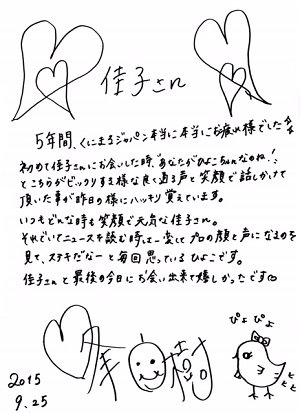 佳子さん
5年間、くにまるジャパン本当に本当にお疲れ様でした
初めて佳子さんにお会いした時"あなたがひよこちゃんなのね!!
とこちらがビックリする様な良く通る声と笑顔で話しかけて
頂いた事が昨日の様にハッキリ覚えています。
いつもどんな時も笑顔で元気な佳子さん。
それでいてニュースを読む時は一変してプロの顔と声になるのを
見て、ステキだなーと毎回思っているひよこです。
佳子さんと最後の今日にお会い出来て嬉しかったです
ぴよぴよ
2015
9.25